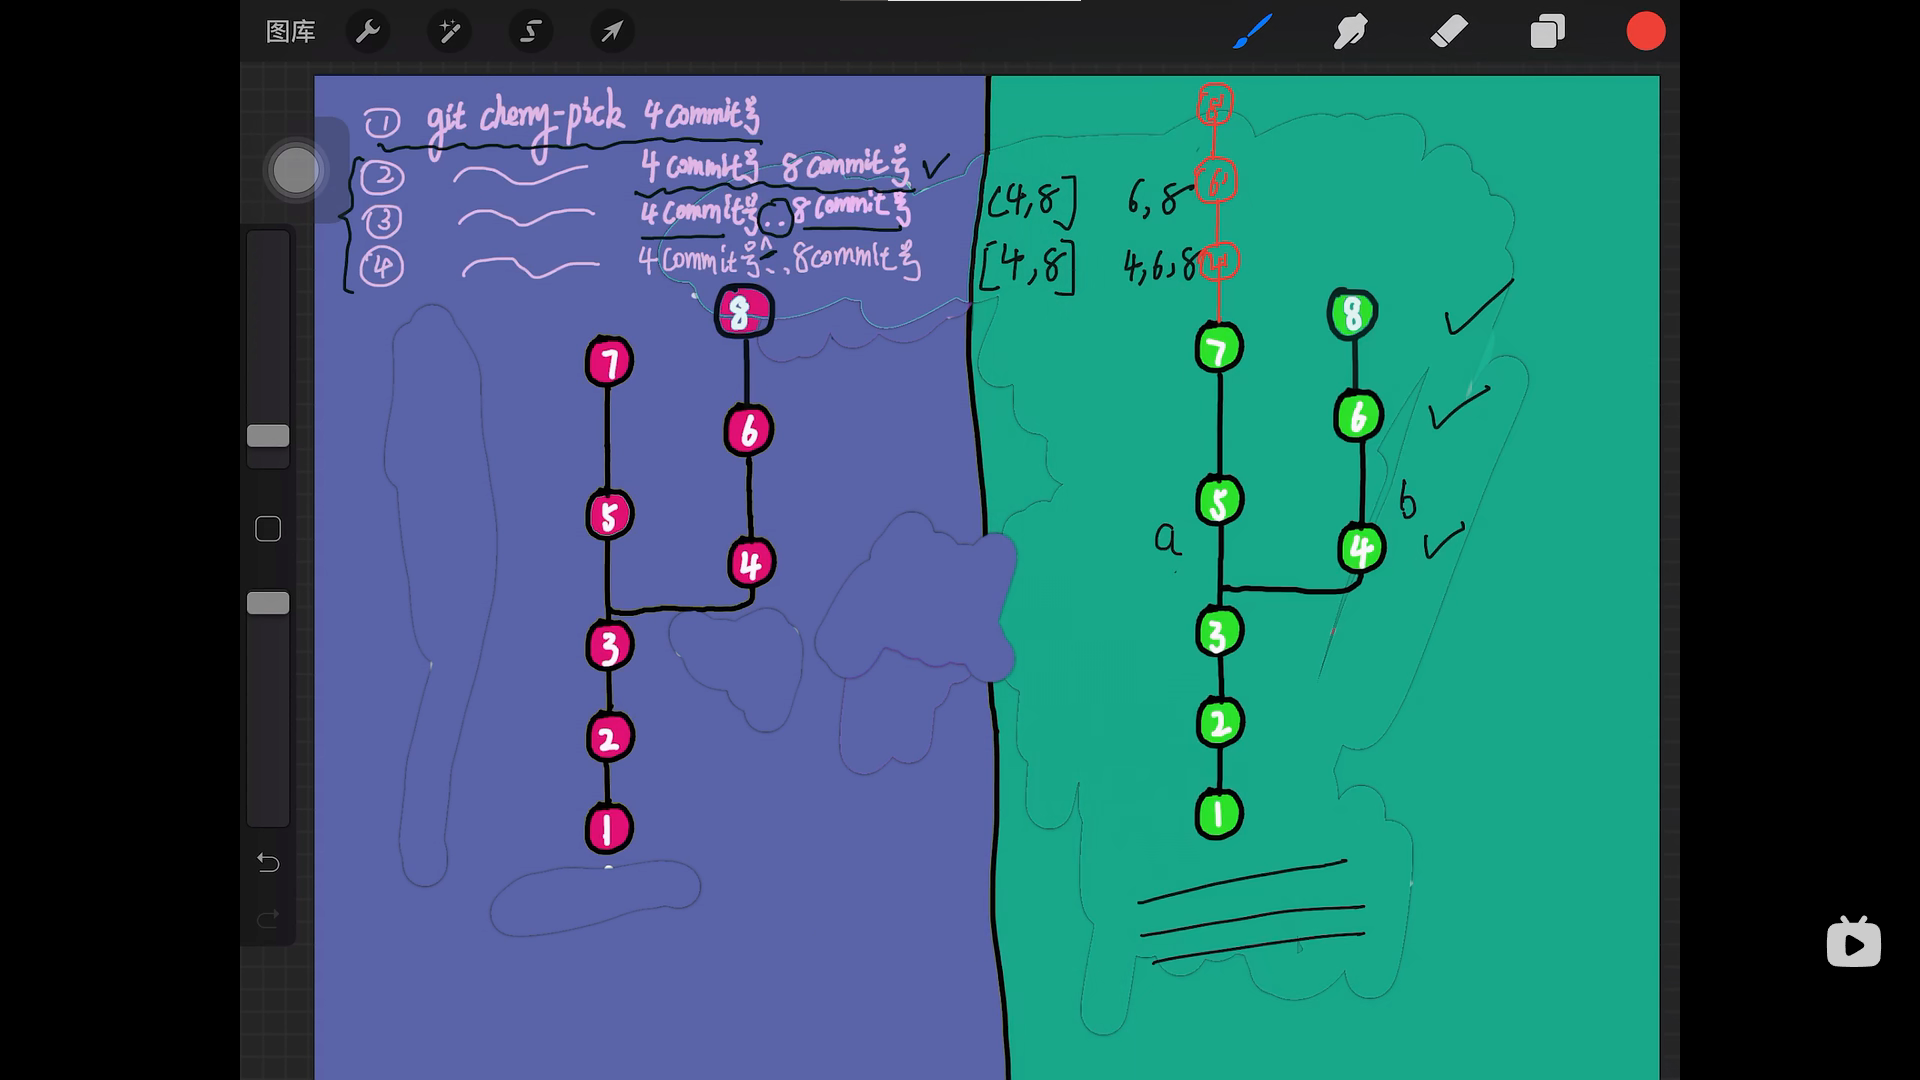 图库
① git cherry-pick 4 commit号
② 4 commit号 8 commit号
③ 4 commit号..8 commit号 (4,8] 6,8
④ 4 commit号^..8 commit号 [4,8] 4,6,8
8'
6'
4'
8
7
6
5
4
3
2
1
8
7
6
5
b
a
4
3
2
1